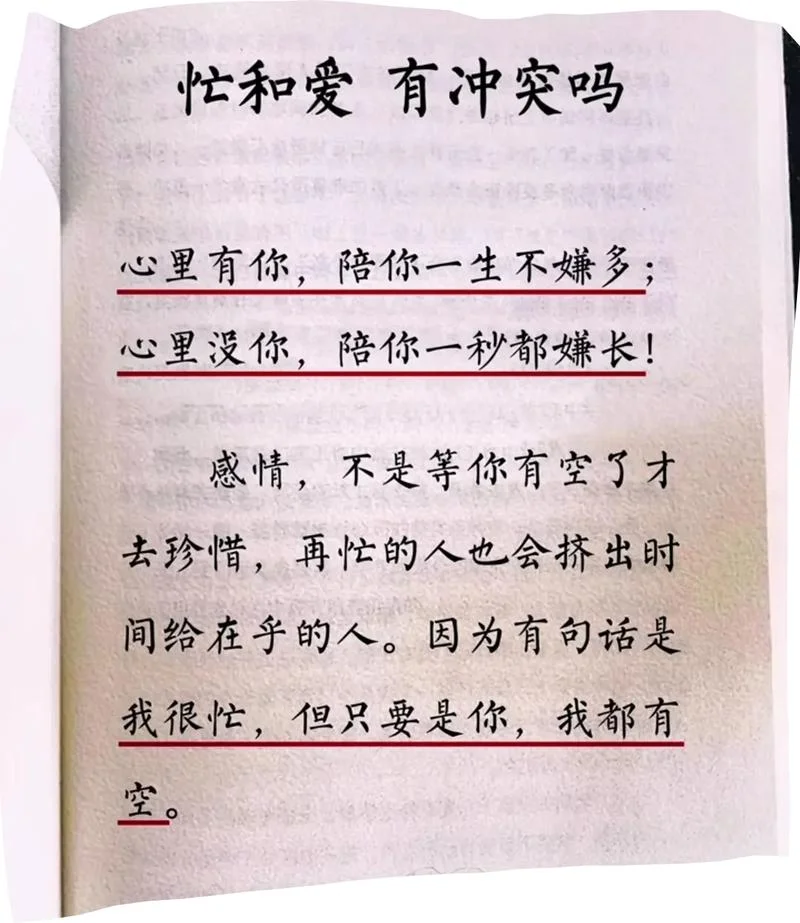 忙和爱 有冲突吗
心里有你，陪你一生不嫌多；
心里没你，陪你一秒都嫌长！
感情，不是等你有空了才
去珍惜，再忙的人也会挤出时
间给在乎的人。因为有句话是
我很忙，但只要是你，我都有
空。